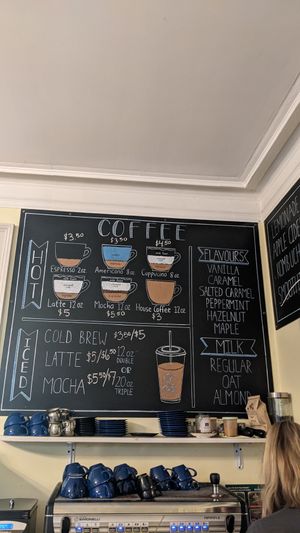 COFFEE
HOT
$3.50
$3.50
$4.50
Espresso 2oz
Americano 8oz
Cappuccino 8oz
Latte 12oz
Mocha 12oz
House Coffee 12oz
$5
$5.50
$3
ICED
COLD BREW $3.50/$5
LATTE $5/$6.50 12oz DOUBLE
OR
MOCHA $5.50/$7 20oz TRIPLE
FLAVOURS
VANILLA
CARAMEL
SALTED CARAMEL
PEPPERMINT
HAZELNUT
MAPLE
MILK
REGULAR
OAT
ALMOND
LEMONADE
APPLE CIDE
KOMBUCH